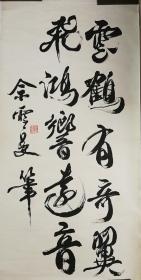 雲鶴有奇翼
飛鴻響遠音
佘雪曼筆